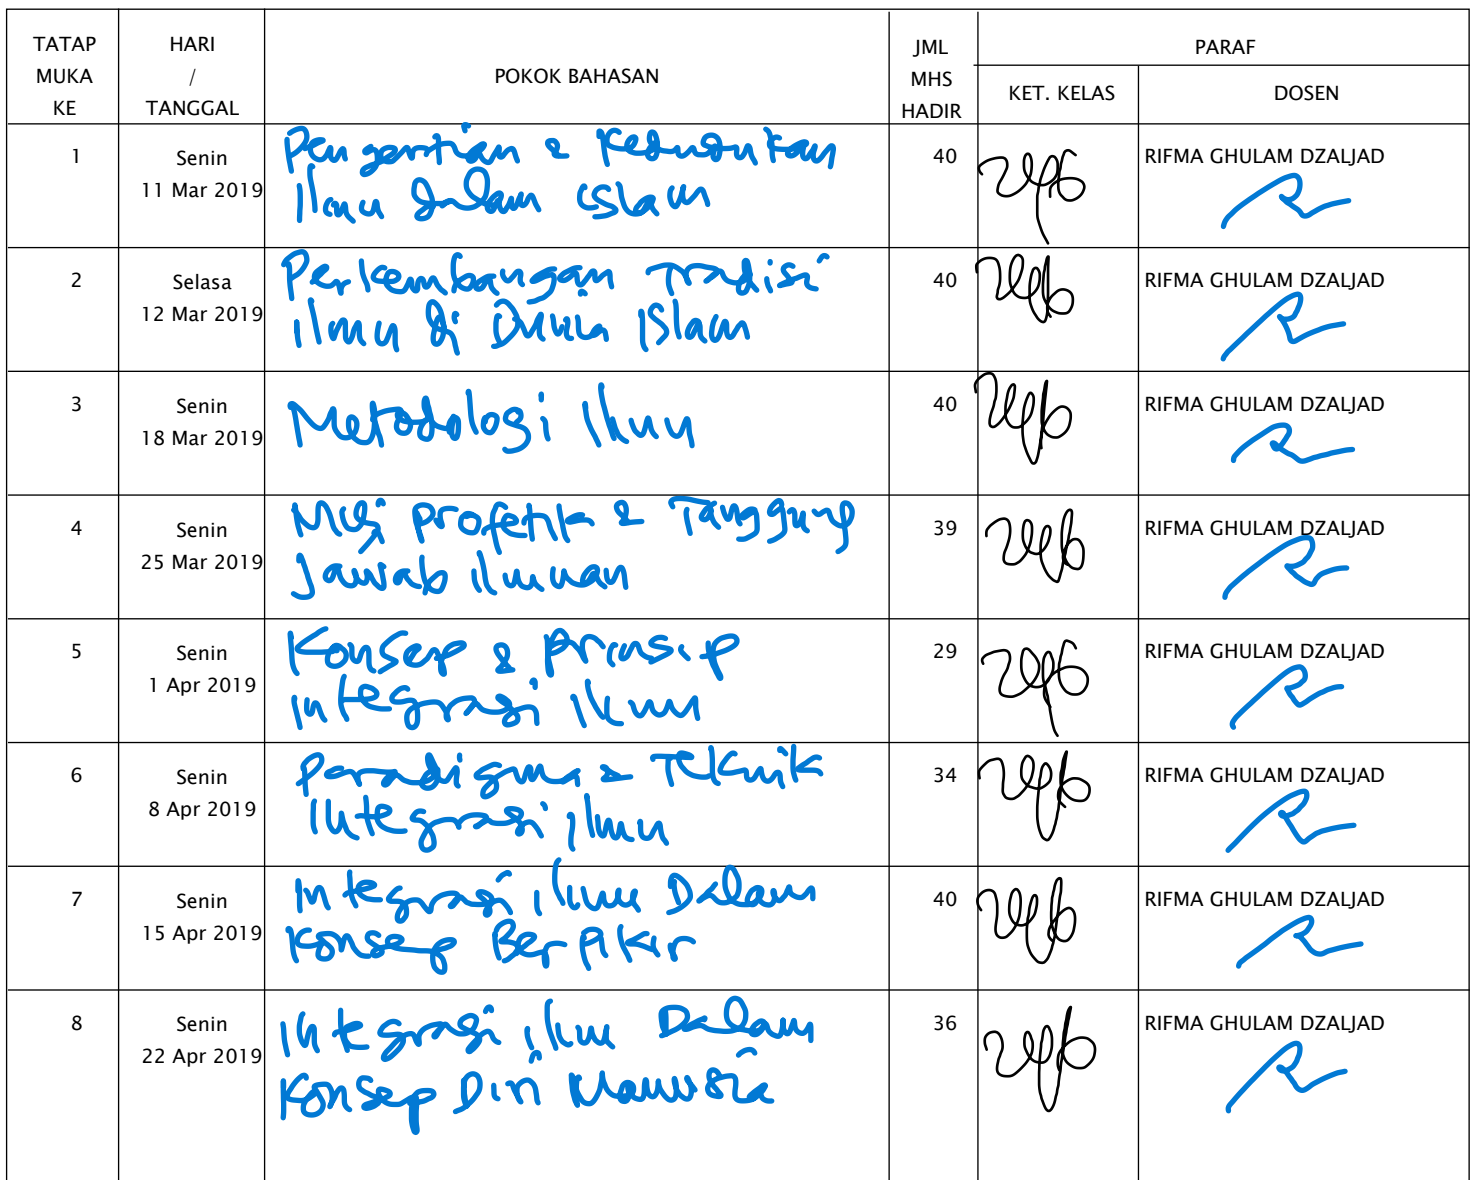 TATAP MUKA KE
HARI / TANGGAL
POKOK BAHASAN
JML MHS HADIR
PARAF
KET. KELAS
DOSEN
1
Senin
11 Mar 2019
Pengertian & Kedudukan
Ilmu dalam Islam
40
RIFMA GHULAM DZALJAD
2
Selasa
12 Mar 2019
Perkembangan Tradisi
ilmu di Dunia Islam
40
RIFMA GHULAM DZALJAD
3
Senin
18 Mar 2019
Metodologi Ilmu
40
RIFMA GHULAM DZALJAD
4
Senin
25 Mar 2019
Misi profetik & Tanggung
Jawab ilmuan
39
RIFMA GHULAM DZALJAD
5
Senin
1 Apr 2019
Konsep & Prinsip
integrasi Ilmu
29
RIFMA GHULAM DZALJAD
6
Senin
8 Apr 2019
Paradigma & Teknik
Integrasi ilmu
34
RIFMA GHULAM DZALJAD
7
Senin
15 Apr 2019
Integrasi ilmu Dalam
Konsep Berpikir
40
RIFMA GHULAM DZALJAD
8
Senin
22 Apr 2019
Integrasi ilmu Dalam
Konsep Diri Manusia
36
RIFMA GHULAM DZALJAD